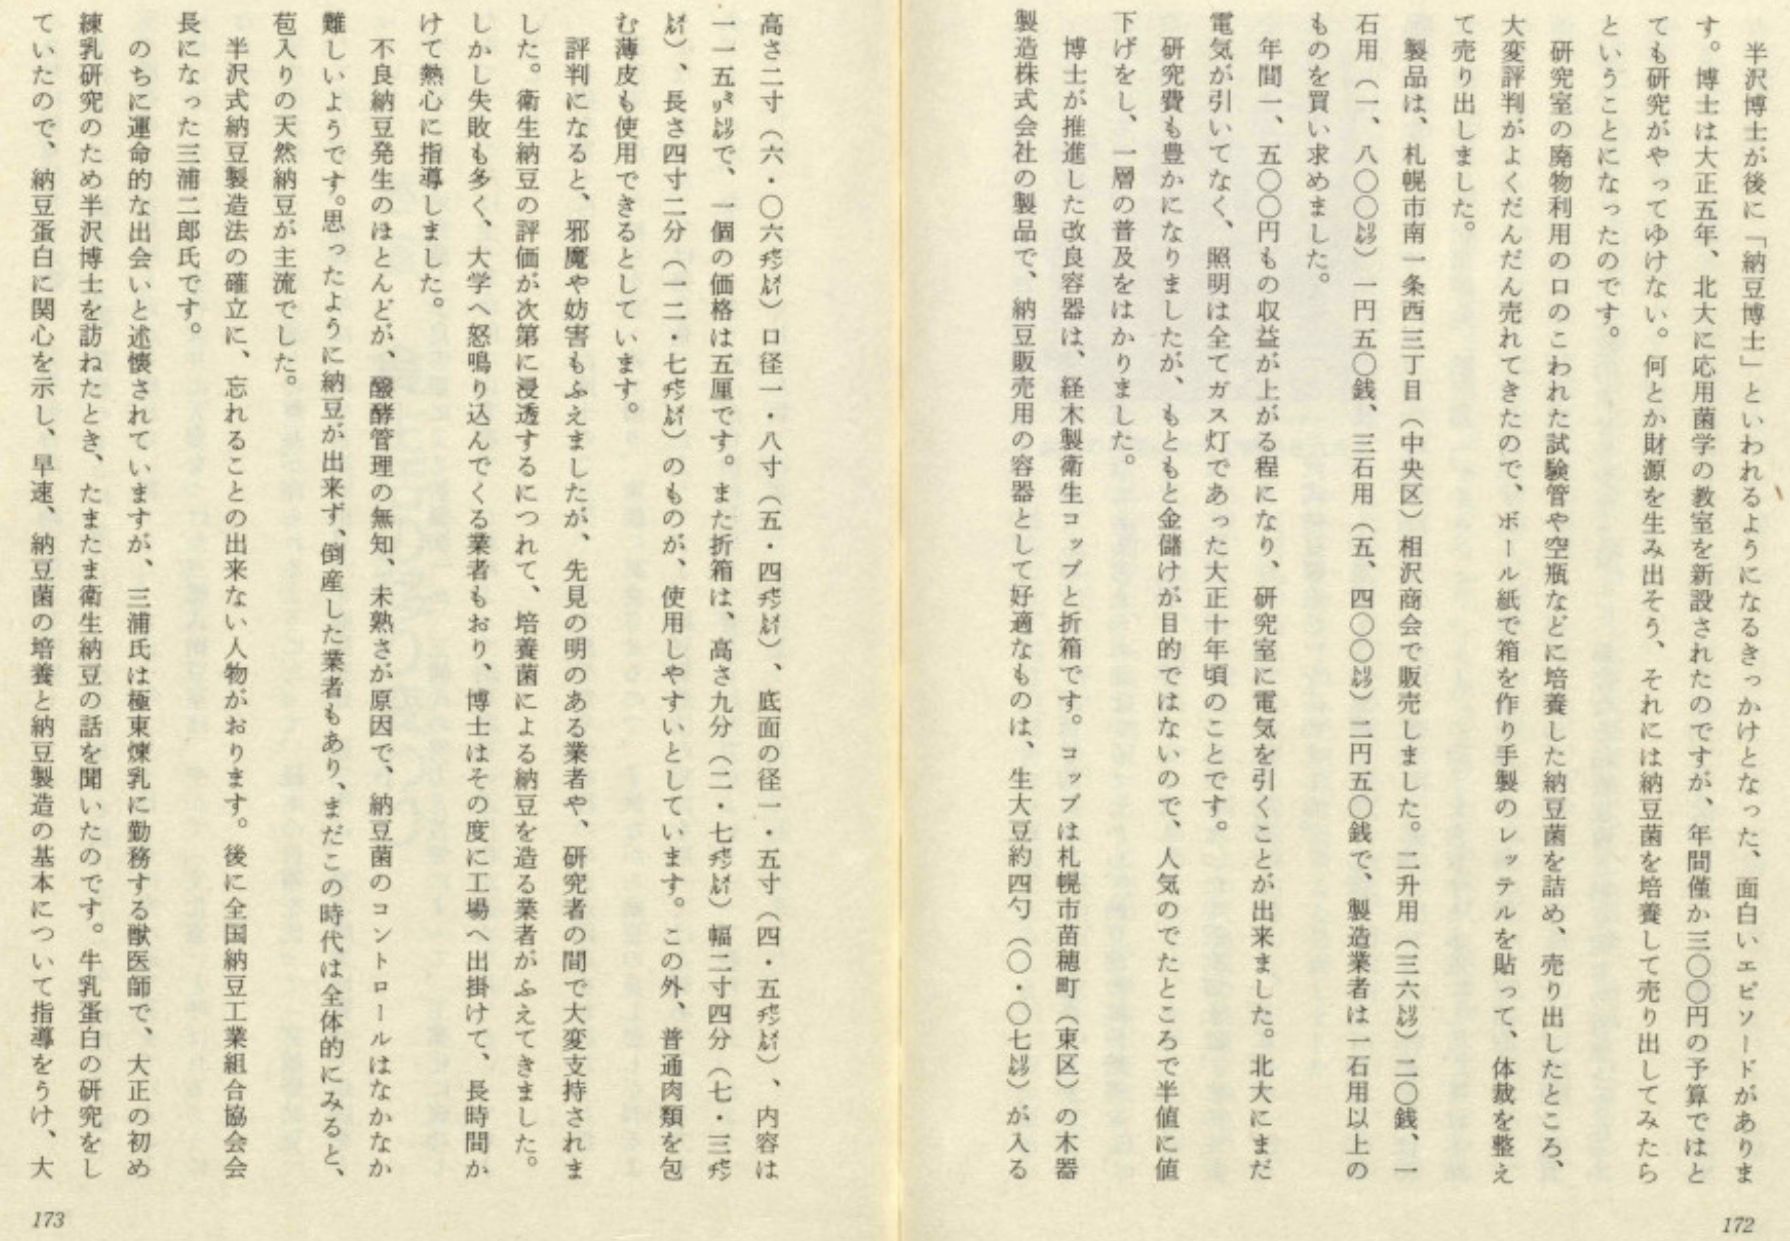 半沢博士が後に「納豆博士」といわれるようになるきっかけとなった、面白いエピソードがありま
す。博士は大正五年、北大に応用菌学の教室を新設されたのですが、年間僅か三〇〇円の予算ではと
ても研究がやってゆけない。何とか財源を生み出そう、それには納豆菌を培養して売り出してみたら
ということになったのです。
研究室の廃物利用の口のこわれた試験管や空瓶などに培養した納豆菌を詰め、売り出したところ、
大変評判がよくだんだん売れてきたので、ボール紙で箱を作り手製のレッテルを貼って、体裁を整え
て売り出しました。
製品は、札幌市南一条西三丁目（中央区）相沢商会で販売しました。二升用（三六㍑）二〇銭、一
石用（一、八〇〇㍑）一円五〇銭、三石用（五、四〇〇㍑）二円五〇銭で、製造業者は一石用以上の
ものを買い求めました。
年間一、五〇〇円もの収益が上がる程になり、研究室に電気を引くことが出来ました。北大にまだ
電気が引いてなく、照明は全てガス灯であった大正十年頃のことです。
研究費も豊かになりましたが、もともと金儲けが目的ではないので、人気のでたところで半値に値
下げをし、一層の普及をはかりました。
博士が推進した改良容器は、経木製衛生コップと折箱です。コップは札幌市苗穂町（東区）の木器
製造株式会社の製品で、納豆販売用の容器として好適なものは、生大豆約四勺（〇・〇七㍑）が入る
172
高さ二寸（六・〇六センチメートル）口径一・八寸（五・四センチメートル）、底面の径一・五寸（四・五センチメートル）、内容は
一一五ミリリットルで、一個の価格は五厘です。また折箱は、高さ九分（二・七センチメートル）幅二寸四分（七・三センチ
メートル）、長さ四寸二分（一二・七センチメートル）のものが、使用しやすいとしています。この外、普通肉類を包
む薄皮も使用できるとしています。
評判になると、邪魔や妨害もふえましたが、先見の明のある業者や、研究者の間で大変支持されま
した。衛生納豆の評価が次第に浸透するにつれて、培養菌による納豆を造る業者がふえてきました。
しかし失敗も多く、大学へ怒鳴り込んでくる業者もおり、博士はその度に工場へ出掛けて、長時間か
けて熱心に指導しました。
不良納豆発生のほとんどが、醱酵管理の無知、未熟さが原因で、納豆菌のコントロールはなかなか
難しいようです。思ったように納豆が出来ず、倒産した業者もあり、まだこの時代は全体的にみると、
苞入りの天然納豆が主流でした。
半沢式納豆製造法の確立に、忘れることの出来ない人物がおります。後に全国納豆工業組合協会会
長になった三浦二郎氏です。
のちに運命的な出会いと述懐されていますが、三浦氏は極東煉乳に勤務する獣医師で、大正の初め
練乳研究のため半沢博士を訪ねたとき、たまたま衛生納豆の話を聞いたのです。牛乳蛋白の研究をし
ていたので、納豆蛋白に関心を示し、早速、納豆菌の培養と納豆製造の基本について指導をうけ、大
173